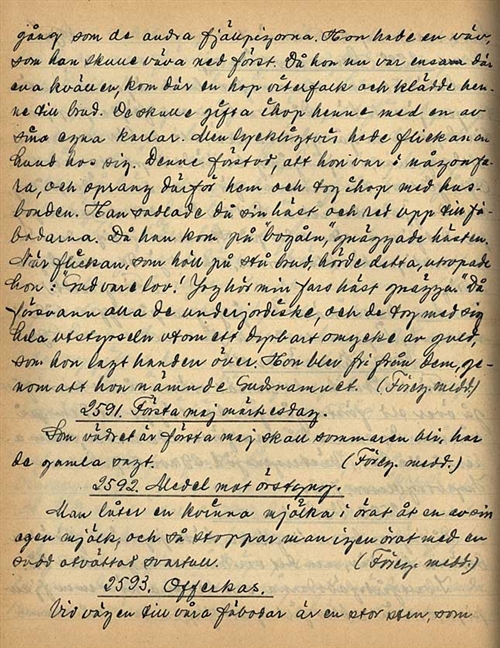 gång som de andra fjällpigorna. Hon hade en väv,
som han skulle väva ned först. Då hon nu var ensam där
ena kvällen, kom där en hop vitterfolk och klädde hen-
ne till brud. De skulle gifta ihop henne med en av
sina egna karlar. Men lyckligtvis hade flickan en
hund hos sig. Denne förstod, att hon var i någon fa-
ra, och sprang därför hem och tog ihop med hus-
bonden. Han sadlade då sin häst och red upp till fä-
bodarna. Då han kom på "bogåln", gnäggade hästen.
När flickan, som höll på stå brud, hörde detta, utropade
hon: "Gud vare lov! Jag hör min fars häst gnägga." Då
försvann alla de underjordiske, och de tog med sig
hela utstyrseln utom ett dyrbart smycke av guld,
som hon lagt handen över. Hon blev fri från dem, ge-
nom att hon nämnde Gudsnamnet. (Föreg. medd.)
2591. Första maj märkesdag.
Som vädret är första maj skall sommaren bli, har
de gamla sagt. (Föreg. medd.)
2592. Medel mot örsprång.
Man låter en kvinna mjölka i örat åt en av sin
egen mjölk, och så stoppar man igen örat med en
sudd otvättad svartull. (Föreg. medd.)
2593. Offerkas.
Vid vägen till våra fäbodar är en stor sten, som